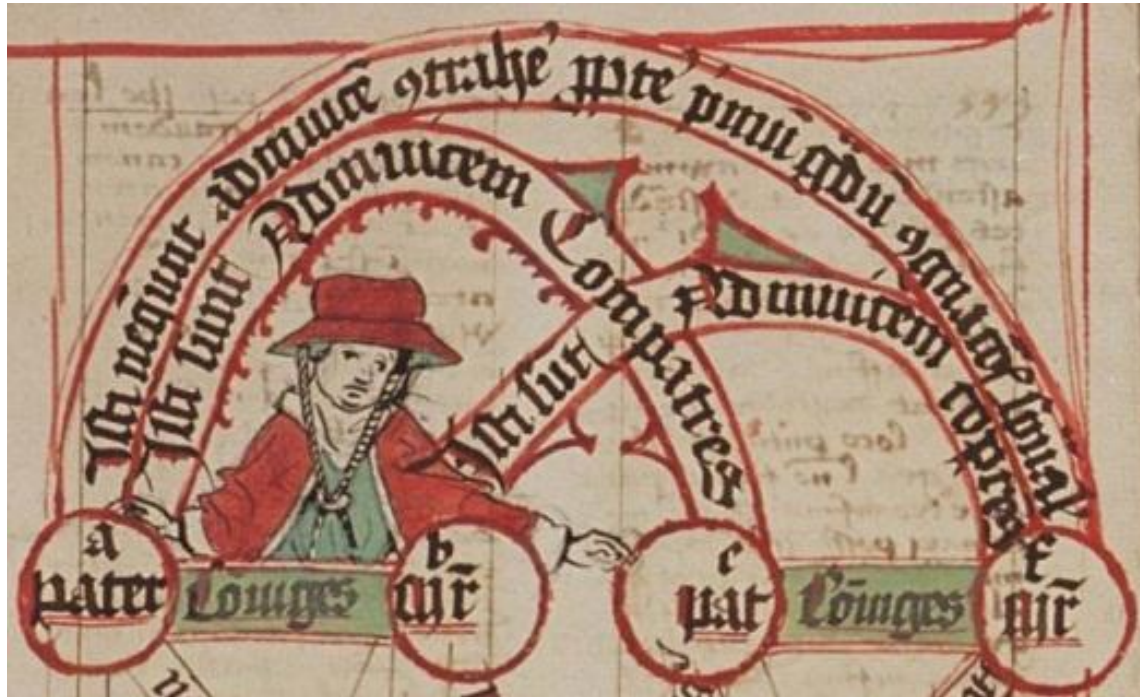 Isti neq̄unt adīuicē ꝯtrahe' ꝓpte' pimū g̃du ꝯ
Isti sunt Adinuicem Compatres
Isti sūt Adinuicem cōpres
a
pater
Cōiuges
b
mr̄
c
pat
Cōiuges
f
mr̄